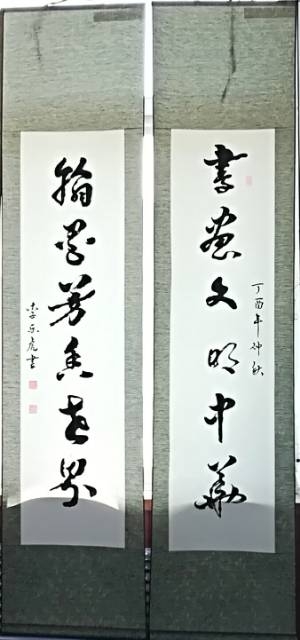 書畫文明中華
丁酉年仲秋
翰墨芳香世界
李乐虎書